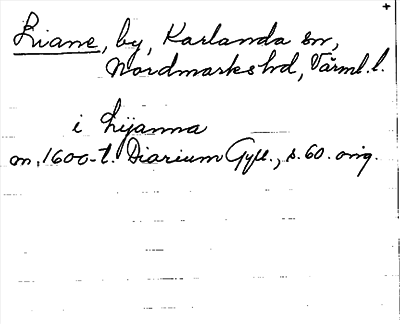 +
Liane, by, Karlanda sn,
Nordmarks hd, Värml. l.
i Lijanna
m. 1600-t. Diarium Gyll., s. 60. orig.